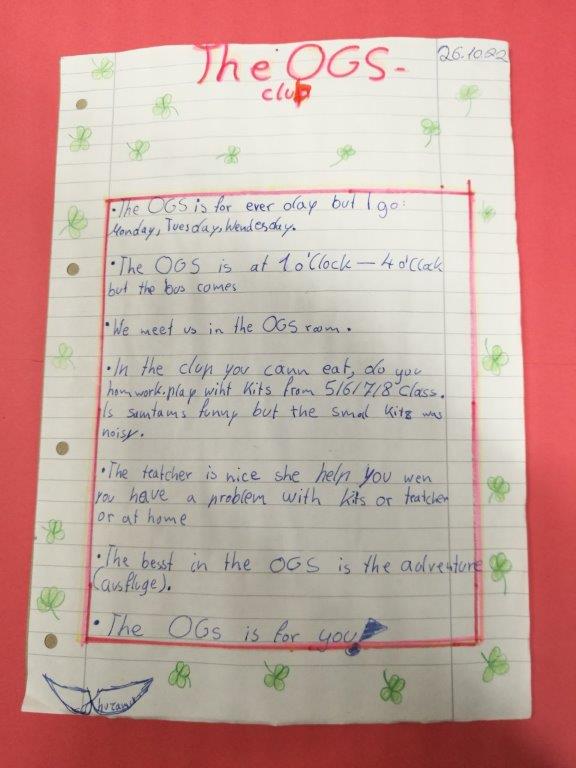 The OGS-
club
26.10.22
• The OGS is for ever day but I go:
Monday, Tuesday, Wendesday.
• The OGS is at 1 o'Clock — 4 o'Clock
but the bus comes
• We meet us in the OGS room.
• In the clup you cann eat, do you
homwork. play wiht Kits from 5/6/7/8 Class.
Is somtams funny but the smal kits was
noisy.
• The teatcher is nice she help you wen
you have a problem with kits or teatcher
or at home
• The besst in the OGS is the adventure
(ausfluge).
• The OGS is for you!